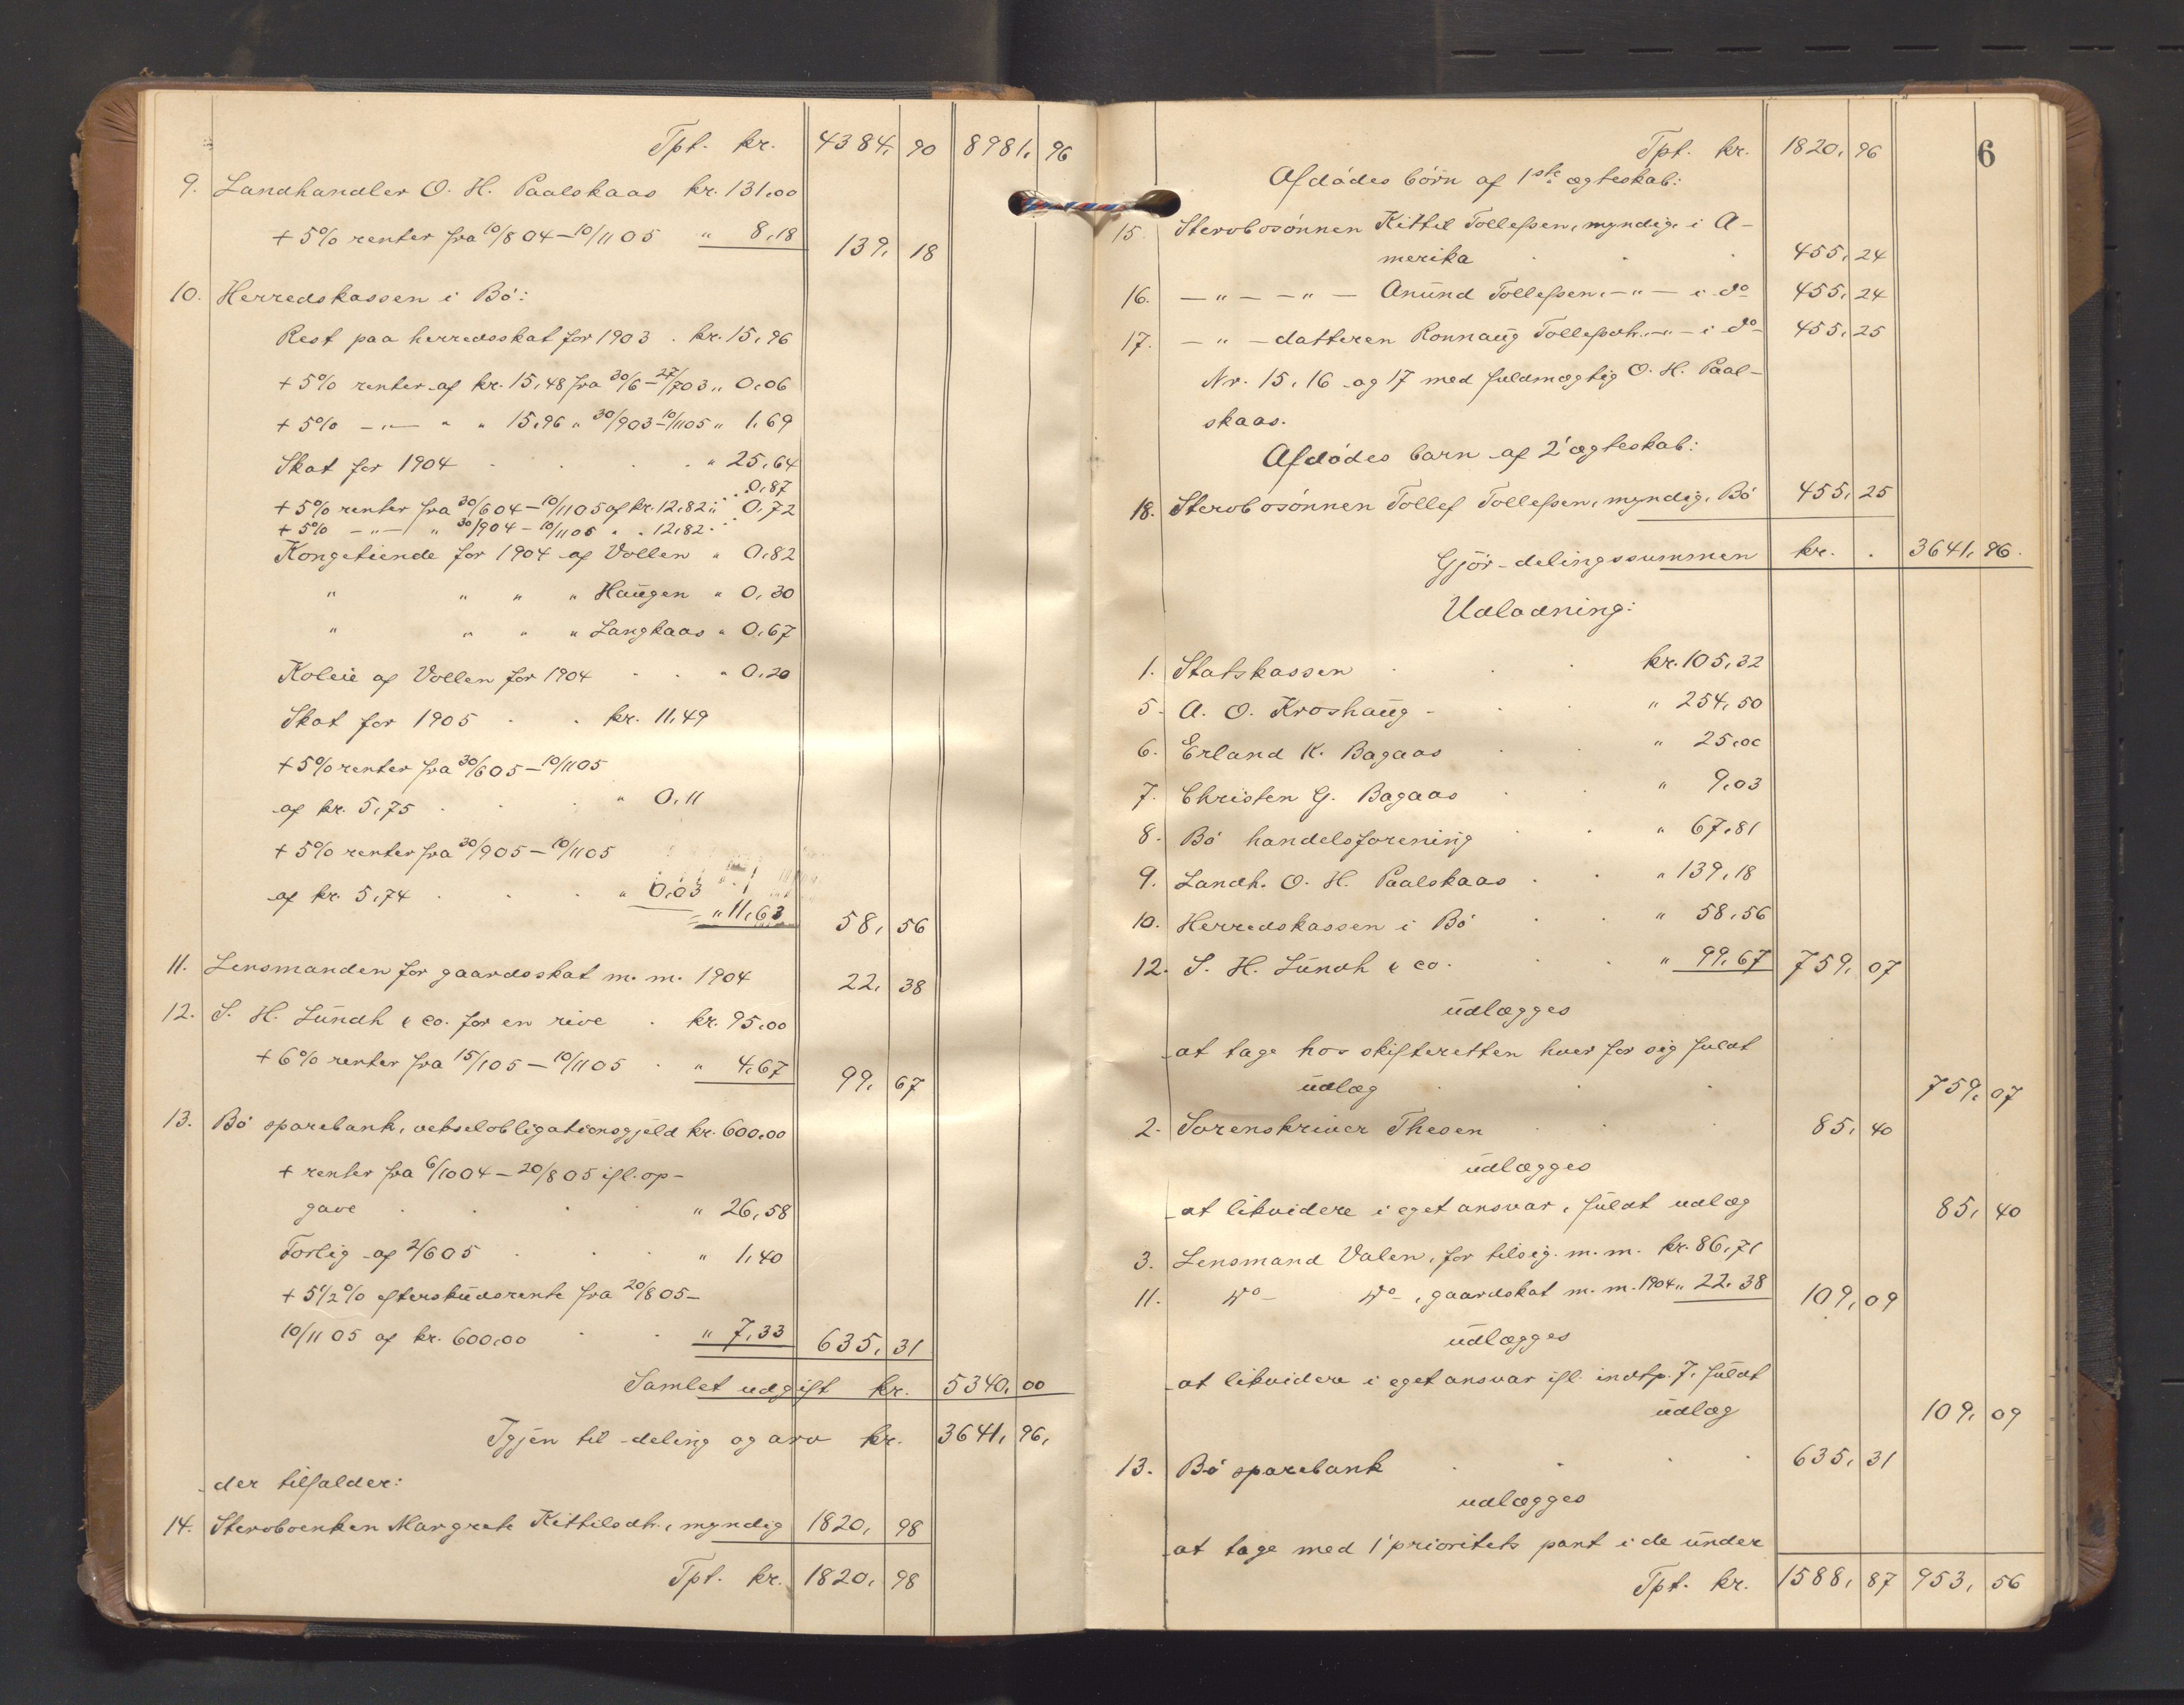 Tpt. kr. 4384, 90 8981, 96
9. Landhandler O. H. Paalskaas kr. 131,00
+ 5% renter fra 10/8 04 – 10/11 05 " 8,18 139, 18
10. Herredskassen i Bø:
Rest paa herredsskat for 1903 . kr. 15,96
+ 5% renter af kr. 15,48 fra 30/6 – 27/7 03 " 0,06
+ 5% – " – " " 15,96 " 30/9 03 – 10/11 05 " 1,69
Skat for 1904 . . . . " 25,64
+ 5% renter fra 30/6 04 – 10/11 05 af kr. 12,82 " 0,87
+ 5% – " – " 30/9 04 – 10/11 05 " " 12,82 " 0,72
Kongetiende for 1904 af Vollen " 0,82
" " " " Haugen " 0,30
" " " " Langkaas " 0,67
Koleie af Vollen for 1904 . . " 0,20
Skat for 1905 . . kr. 11,49
+ 5% renter fra 30/6 05 – 10/11 05
af kr. 5,75 . . " 0,11
+ 5% renter fra 30/9 05 – 10/11 05
af kr. 5,74 . . . " 0,03
" 11,63 58, 56
11. Lensmanden for gaardsskat m. m. 1904 22, 38
12. S. H. Lundh & co. for en rive . kr. 95,00
+ 6% renter fra 15/1 05 – 10/11 05 . " 4,67 99, 67
13. Bø sparebank, vekselobligationsgjeld kr. 600,00
+ renter fra 6/10 04 – 20/8 05 ifl. op-
gave . . . . " 26,58
Forlig af 2/6 05 . . . " 1,40
+ 5 1/2% efterskudsrente fra 20/8 05 –
10/11 05 af kr. 600,00 . . " 7,33 635, 31
Samlet udgift kr. 5340, 00
Igjen til deling og arv kr. 3641, 96,
der tilfalder:
14. Sterboenken Margrete Kittilsdtr., myndig 1820, 98
Tpt. kr. 1820, 98
6
Tpt. kr. 1820, 96
Afdødes børn af 1ste ægteskab:
15. Sterbosønnen Kittil Tollefsen, myndig, i A-
merika . . . 455, 24
16. – " – – " – Anund Tollefsen, – " – i do 455, 24
17. – " – datteren Ronnaug Tollefsdtr. – " – i do 455, 25
Nr. 15, 16 og 17 med fuldmægtig O. H. Paal-
skaas.
Afdødes barn af 2' ægteskab:
18. Sterbosønnen Tollef Tollefsen, myndig, Bø 455, 25
Gjør delingssummen kr. . 3641, 96.
Udlodning:
1. Statskassen . . kr. 105,32
5. A. O. Kroshaug . . " 254,50
6. Erland K. Bagaas . . " 25,00
7. Christen G. Bagaas . . " 9,03
8. Bø handelsforening . . " 67,81
9. Landh. O. H. Paalskaas . . " 139,18
10. Herredskassen i Bø . . " 58,56
12. S. H. Lundh & co. . . " 99,67 759, 07
udlægges
at tage hos skifteretten hver for sig fuldt
udlæg . . . 759, 07
2. Sorenskriver Thesen . . 85, 40
udlægges
at likvidere i eget ansvar, fuldt udlæg 85, 40
3. Lensmand Valen, for tilsig. m. m. kr. 86,71
11. do do, gaardskat m. m. 1904 " 22,38 109, 09
udlægges
at likvidere i eget ansvar ifl. indtp. 7, fuldt
udlæg 109, 09
13. Bø sparebank . . . 635, 31
udlægges
at tage med 1' prioritets pant i de under
Tpt. kr. 1588, 87 953, 56